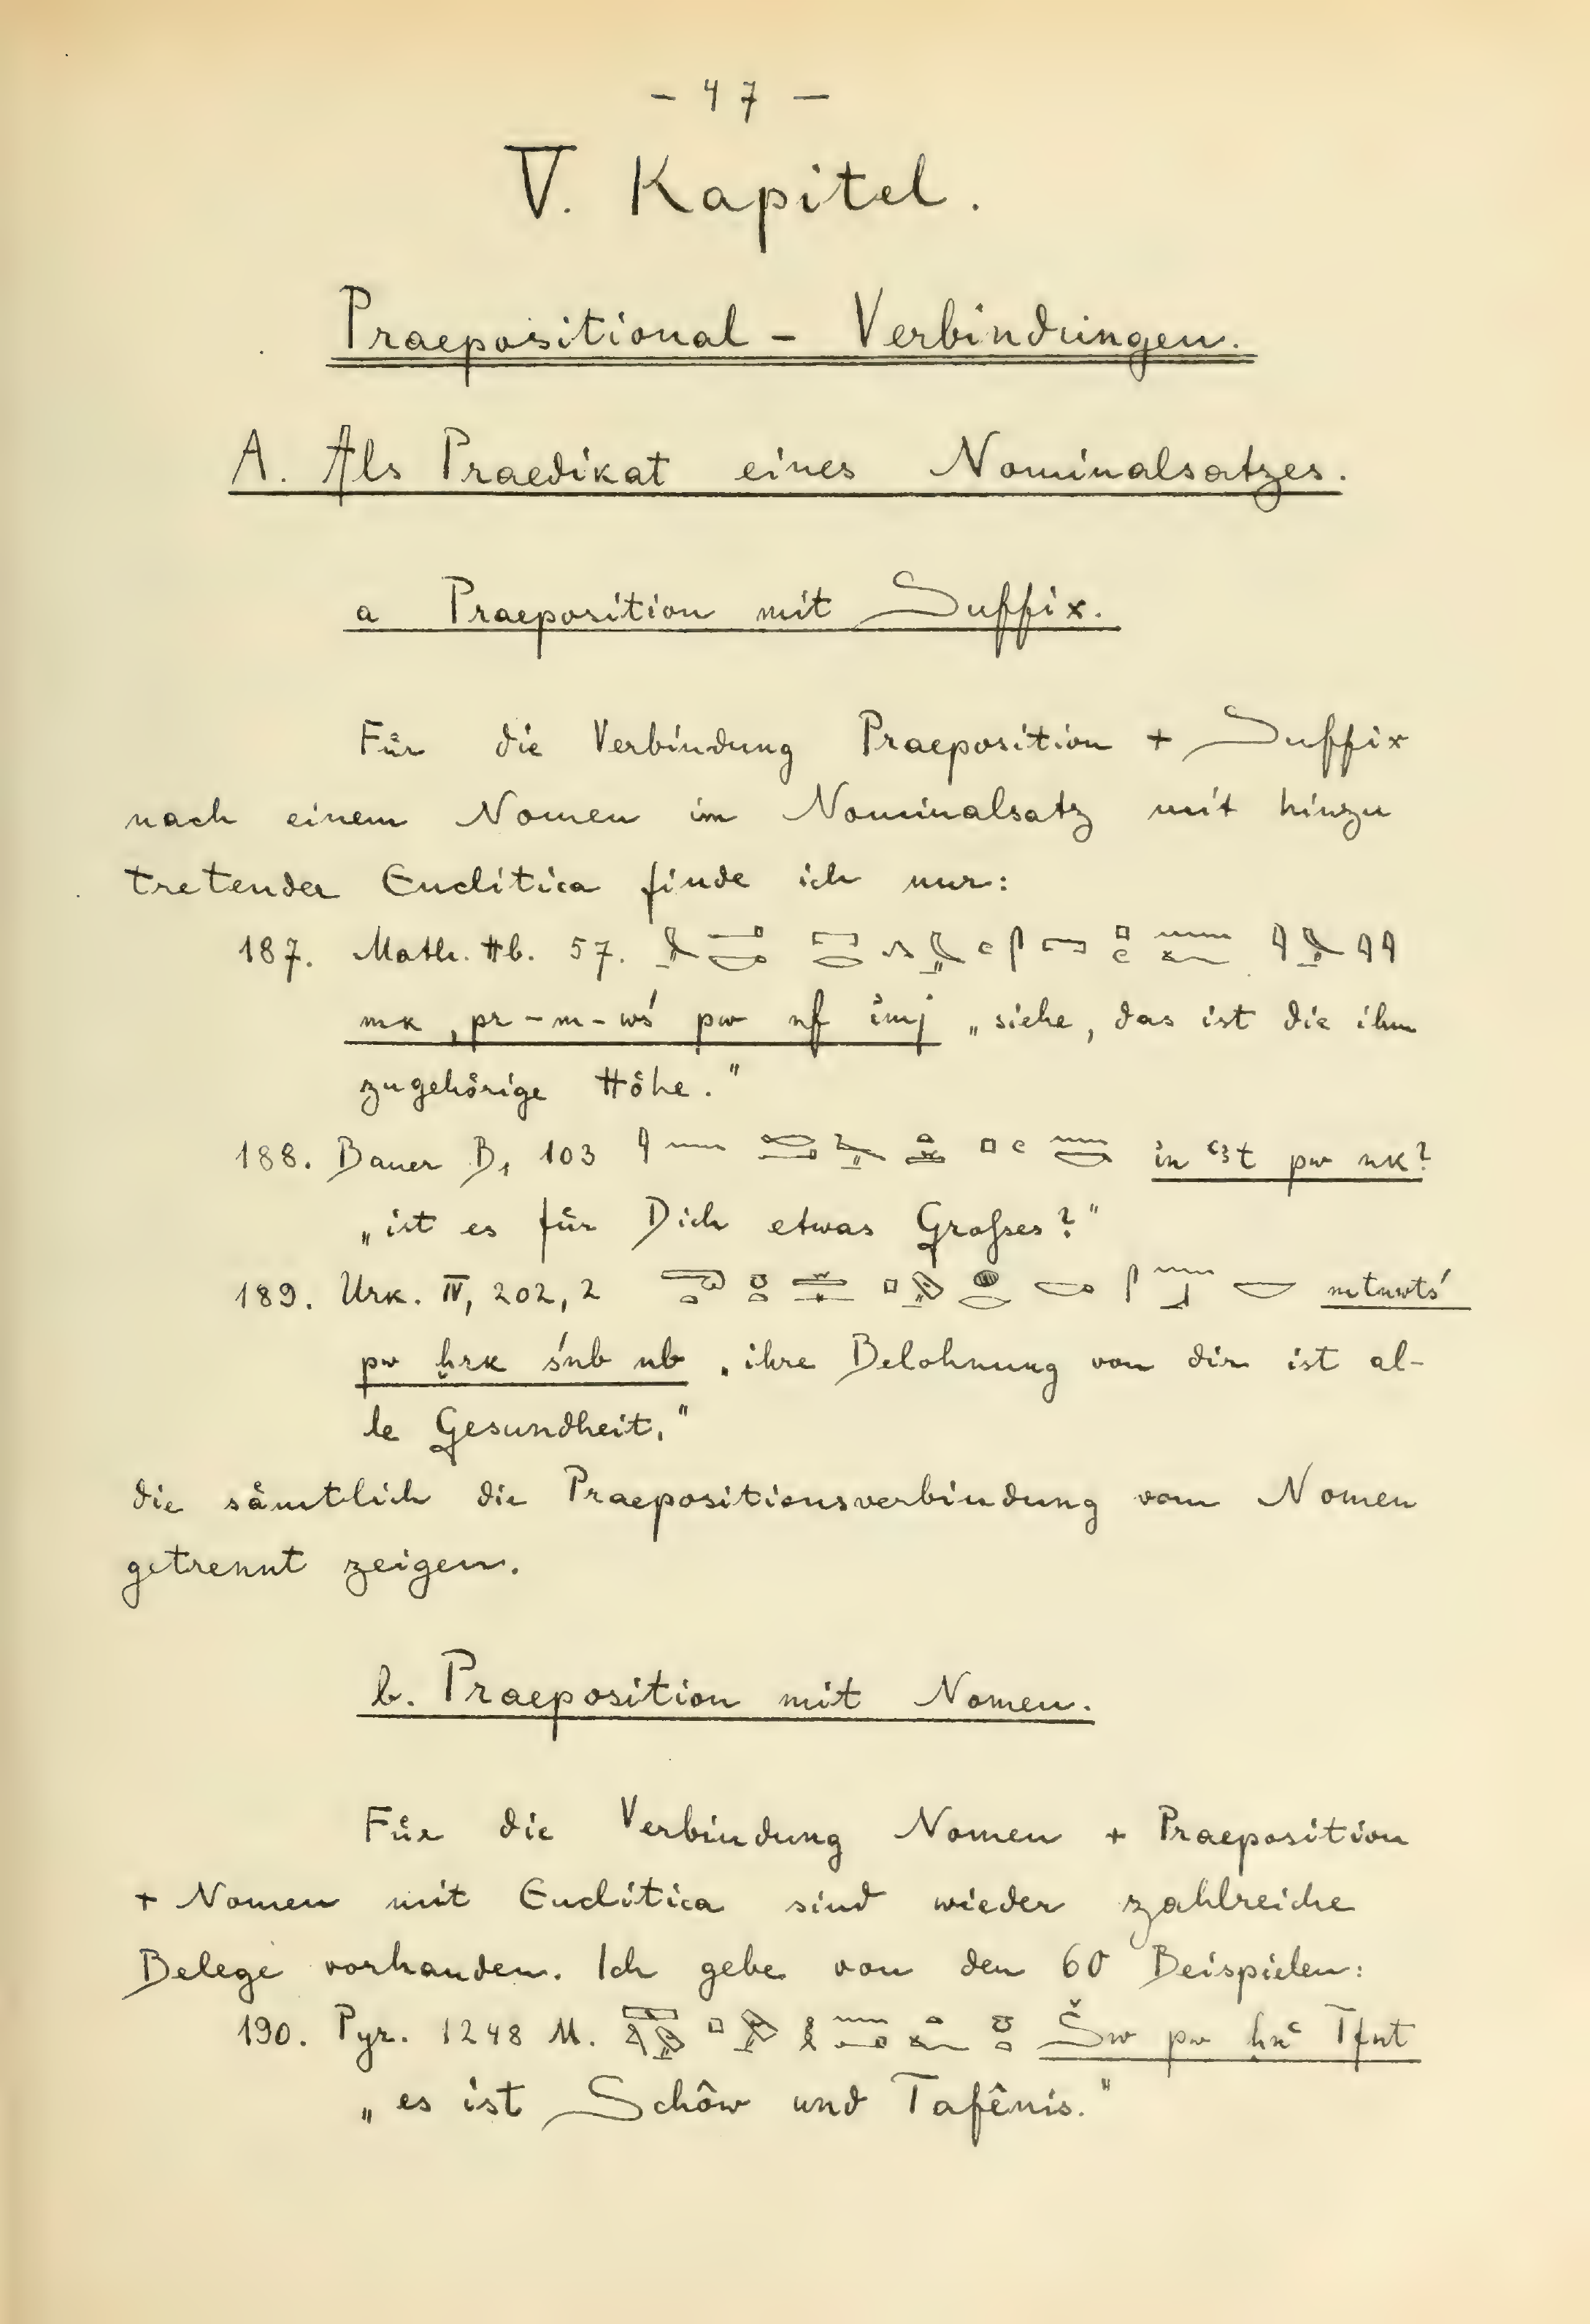 - 47 -
V. Kapitel.
Praepositional - Verbindungen.
A. Als Praedikat eines Nominalsatzes.
a Praeposition mit Suffix.
Für die Verbindung Praeposition + Suffix
nach einem Nomen im Nominalsatz mit hinzu
tretender Enclitica finde ich nur:
187. Math. Hb. 57.
mk, pr-m-wś pw nf imj „siehe, das ist die ihm
zugehörige Höhe."
188. Bauer B₁ 103 in ꜥꜣt pw nk?
„ist es für Dich etwas Großes?"
189. Urk. IV, 202, 2
pw ḫrk śnb nb „ihre Belohnung von dir ist al-
le Gesundheit,"
die sämtlich die Praepositionsverbindung vom Nomen
getrennt zeigen.
b. Praeposition mit Nomen.
Für die Verbindung Nomen + Praeposition
+ Nomen mit Enclitica sind wieder zahlreiche
Belege vorhanden. Ich gebe von den 60 Beispielen:
190. Pyr. 1248 M. Šw pw ḥnꜥ Tfnt
„es ist Schôw und Tafênis."